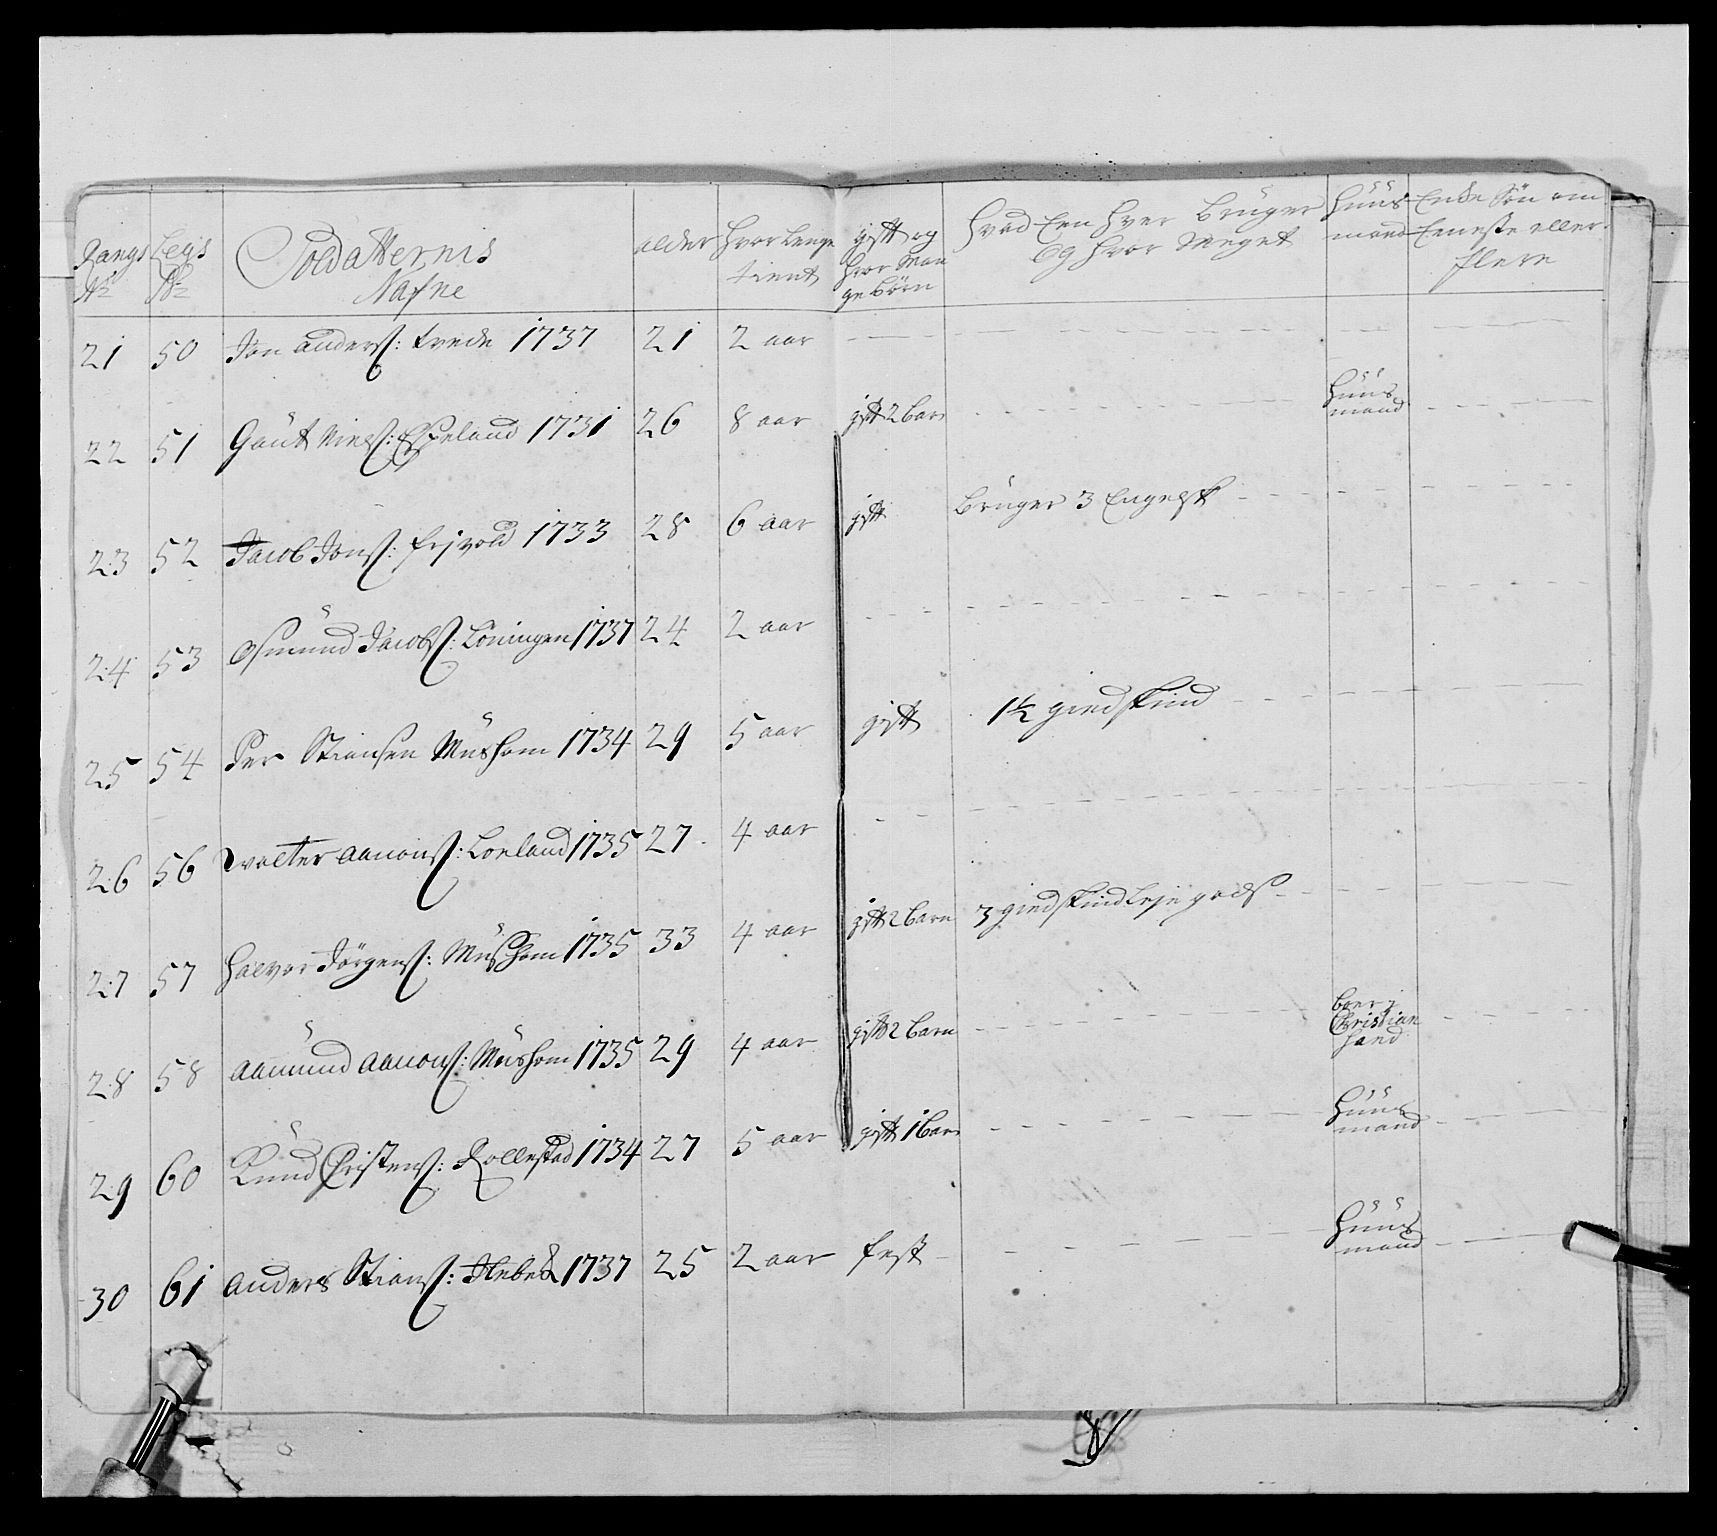 Rangs No
Legs No
Soldatternis Nafne
alder
hvor lenge tient
gift og hvor Mange børn
hvad Een hver Brüger Og hvor Meget
Hüüs mand
Ende Søn om Eeneste eller flere
21 50 Jon anders: trede 1737 21 2 aar
22 51 Gaüt Niels: Espeland 1731 26 8 aar gift 2 barn Hüüs mand
23 52 Jacob Jons: frivold 1733 28 6 aar gift Brüger 3 Engelsk
24 53 Osmünd Jacobs: Löningen 1737 24 2 aar
25 54 Per Stiansen Müshom 1734 29 5 aar gift 1½ giedskind
26 56 Wolter Aanons: Loeland 1735 27 4 aar
27 57 Halvor Jörgens: Müshom 1735 33 4 aar gift 2 barn 3 giedskind leje gods
28 58 Aamünd Aanons: Müshom 1735 29 4 aar gift 2 barn boer i Christian sand
29 60 Knüd Christens: Rollestad 1734 27 5 aar gift 1 barn Hüüs mand
30 61 anders Stians: 1737 25 2 aar fest Hüüs mand